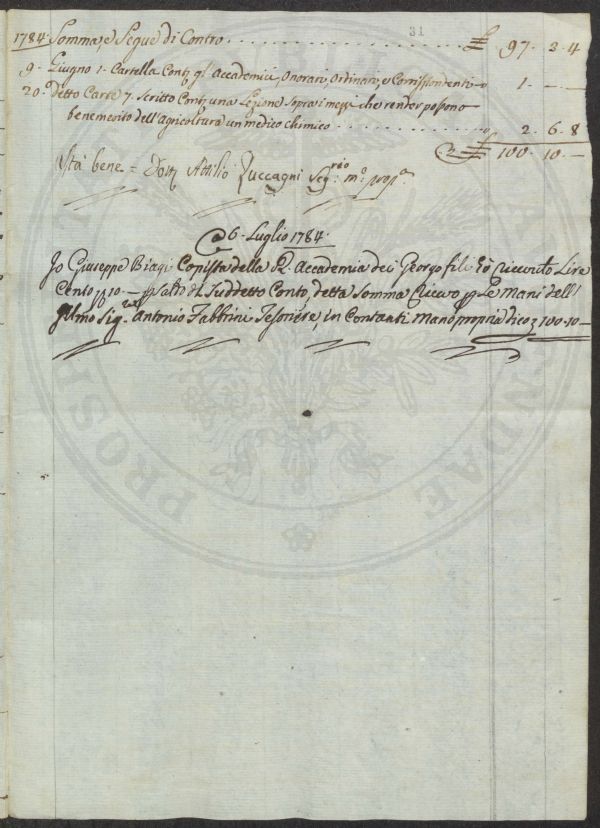 31
1784. Somma, e Segue di Contro . . . . . . . . . . . . . . . . . . . £ 97. 2. 4
9. Giugno 1. Cartella Contg. gl' Accademici, Onorarj, Ordinarj, e Corrispondenti. 1. — —
20. Detto Carte 7. Scritto Contg. una Lezione Sopra i mezzi che render possono
benemerito dell'agricoltura un medico chimico . . . . . . . . . . . . 2. 6. 8
£ 100. 10. —
Sta bene = Dott. Attilio Zuccagni Seg.rio m.o prop.a
6. Luglio 1784.
Io Giuseppe Biagi Copista della R. Accademia dei Georgofili hò ricevuto Lire
Cento 10 — Saldo di Suddetto Conto, detta Somma ricevo Le Mani dell'
Ilmo Sig. Antonio Fabbrini Tesoriere, in Contanti Mano propria dico £ 100. 10 —
PROSPERITATI AUGENDAE